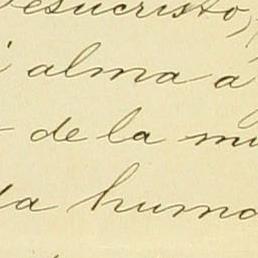 Jesucristo,
i alma a
de la mu
ta huma